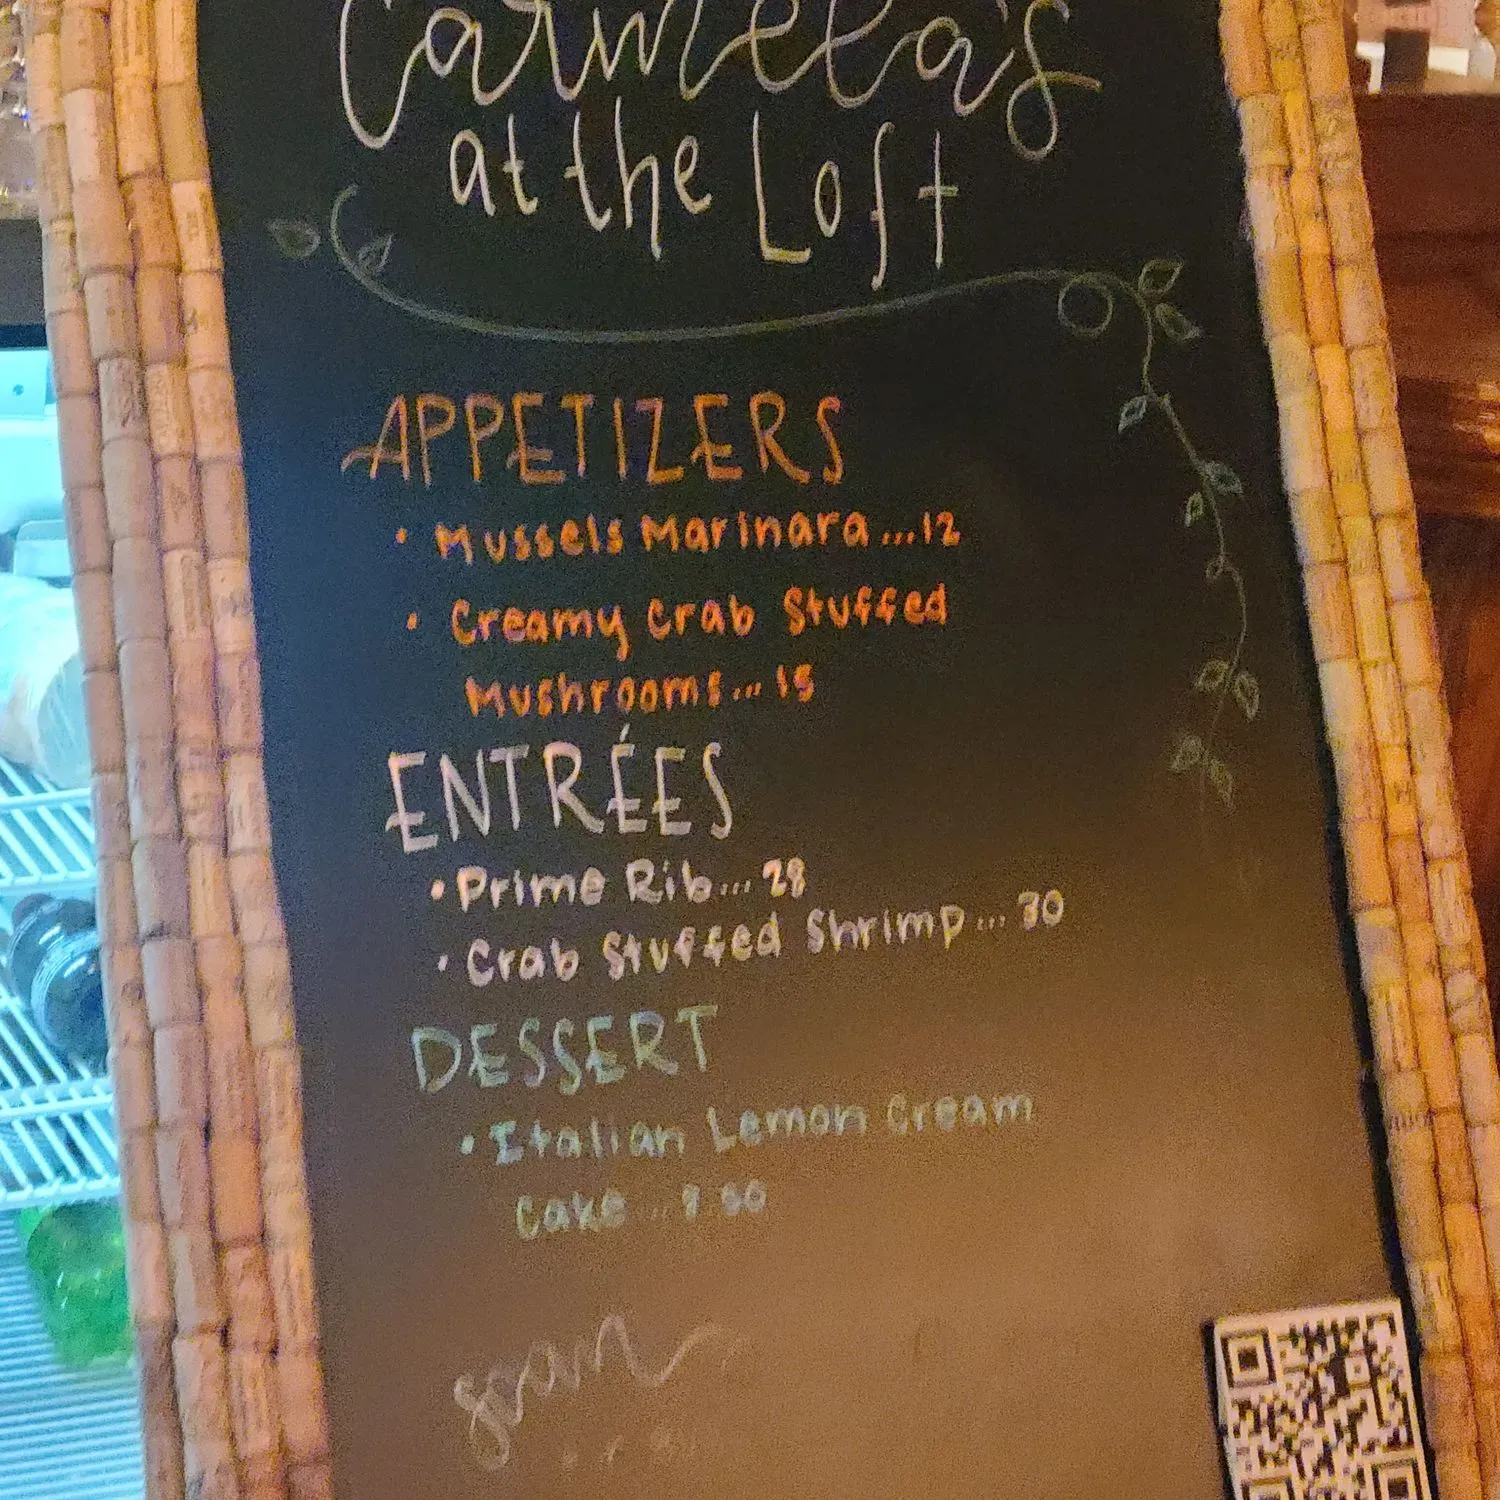 Carmela's
at the Loft
APPETIZERS
• Mussels Marinara...12
• Creamy Crab Stuffed
Mushrooms...15
ENTRÉES
• Prime Rib...28
• Crab Stuffed Shrimp...30
DESSERT
• Italian Lemon Cream
Cake...